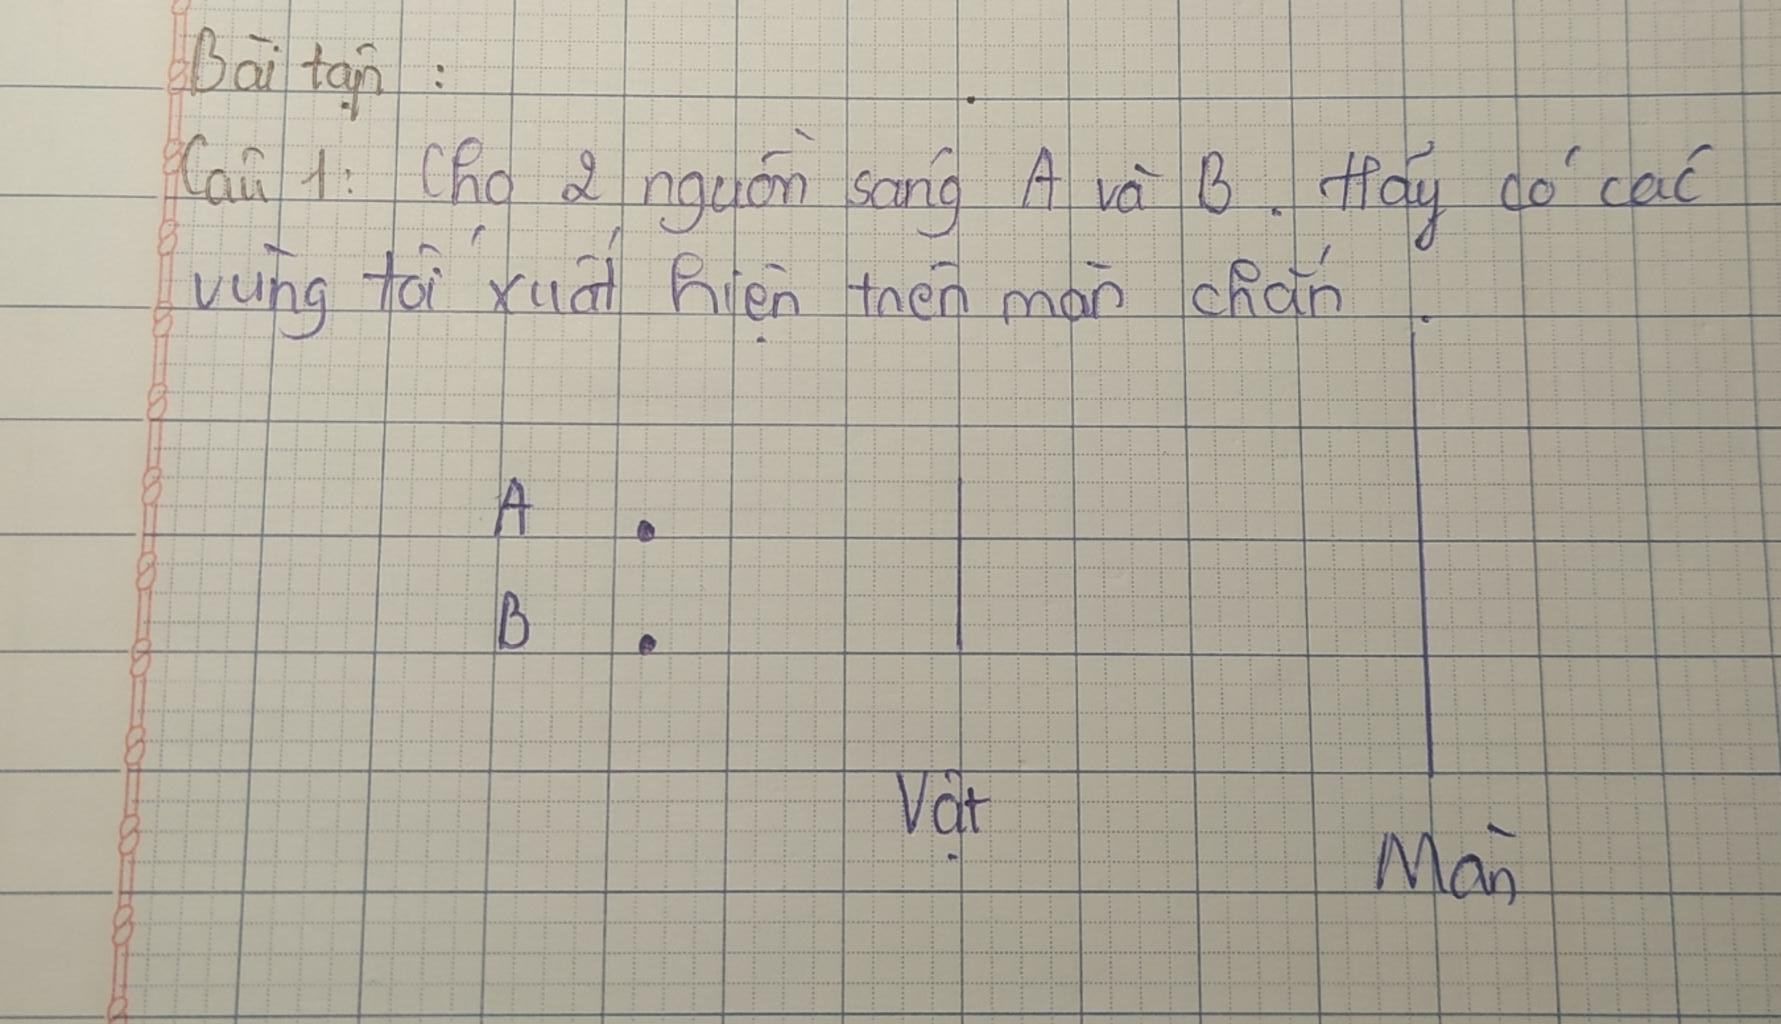 Bài tập :
Câu 1: Cho 2 nguồn sáng A và B. Hãy có các
vùng tối xuất hiện trên màn chắn.
A
B
Vật
Màn